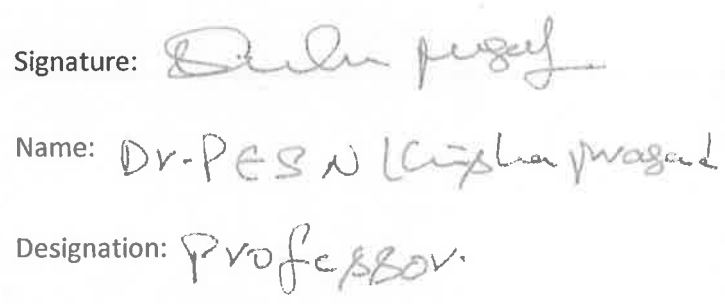 Signature:
Name: Dr. P E S N Krishna prasad
Designation: Professor.